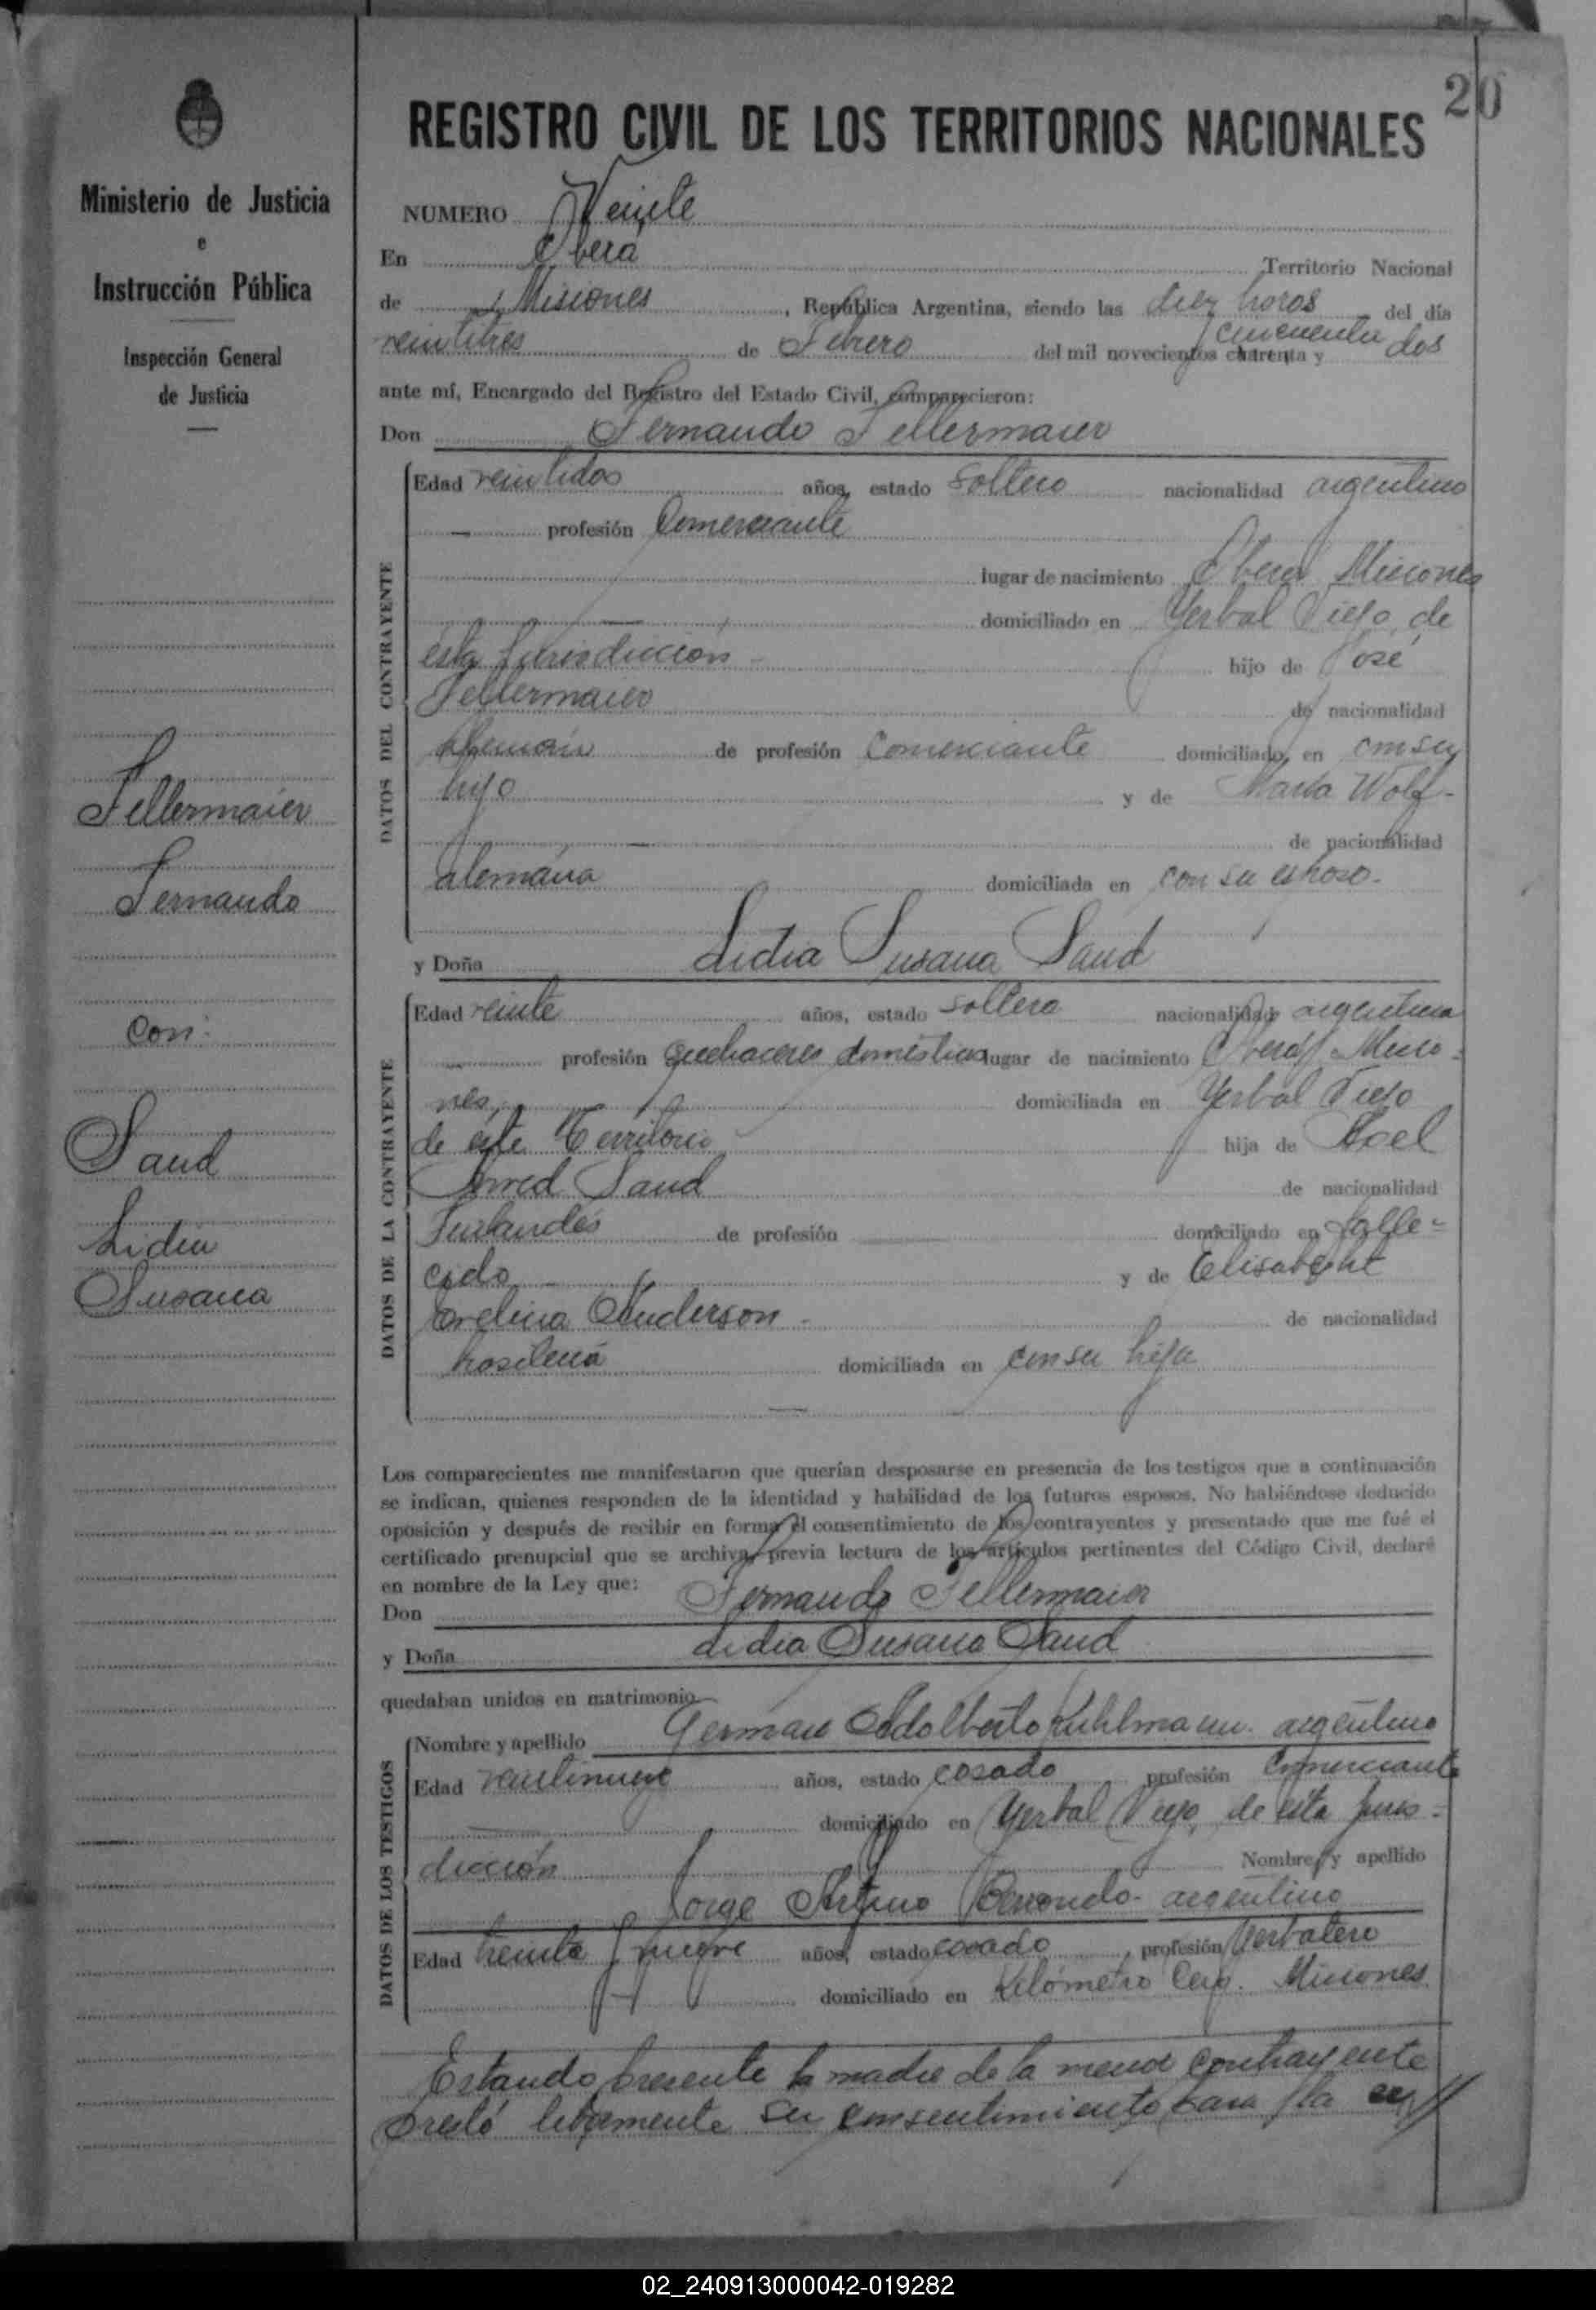 20
Ministerio de Justicia
e
Instrucción Pública
Inspección General
de Justicia
Fellermaier
Fernando
con:
Sand
Lidia
Susana
REGISTRO CIVIL DE LOS TERRITORIOS NACIONALES
NUMERO Veinte
En Oberá Territorio Nacional
de Misiones, República Argentina, siendo las diez horas del día
veintitres de Febrero del mil novecientos cuarenta y cincuenta y dos
ante mí, Encargado del Registro del Estado Civil, comparecieron:
Don Fernando Fellermaier
DATOS DEL CONTRAYENTE
Edad veintidos años, estado soltero nacionalidad argentino
profesión Comerciante
lugar de nacimiento Oberá Misiones
domiciliado en Yerbal Viejo, de
esta Jurisdicción - hijo de José
Fellermaier de nacionalidad
Alemán de profesión Comerciante domiciliado en con su
hijo y de María Wolf-
de nacionalidad
alemana domiciliada en con su esposo.-
y Doña Lidia Susana Sand
DATOS DE LA CONTRAYENTE
Edad veinte años, estado soltera nacionalidad argentina
profesión quehaceres domésticos lugar de nacimiento Oberá, Misio-
nes, domiciliada en Yerbal Viejo
de este Territorio hija de
Sand de nacionalidad
Finlandés de profesión domiciliado en falle-
cido - y de Elisabeht
Evelina Anderson - de nacionalidad
brasileña domiciliada en con su hija
Los comparecientes me manifestaron que querían desposarse en presencia de los testigos que a continuación
se indican, quienes responden de la identidad y habilidad de los futuros esposos. No habiéndose deducido
oposición y después de recibir en forma el consentimiento de los contrayentes y presentado que me fué el
certificado prenupcial que se archiva, previa lectura de los artículos pertinentes del Código Civil, declaré
en nombre de la Ley que:
Don Fernando Fellermaier
y Doña Lidia Susana Sand
quedaban unidos en matrimonio
DATOS DE LOS TESTIGOS
Nombre y apellido German Adolberto Kuhlmann. argentino
Edad veintinueve años, estado casado profesión Comerciante
domiciliado en Yerbal Viejo, de esta juris-
dicción Nombre y apellido
Jorge Arturo - argentino
Edad treinta y nueve años, estado casado, profesión Yerbatero
domiciliado en Kilómetro Cero. Misiones.
Estando presente la madre de la menor contrayente
prestó libremente su consentimiento para la
02_240913000042-019282